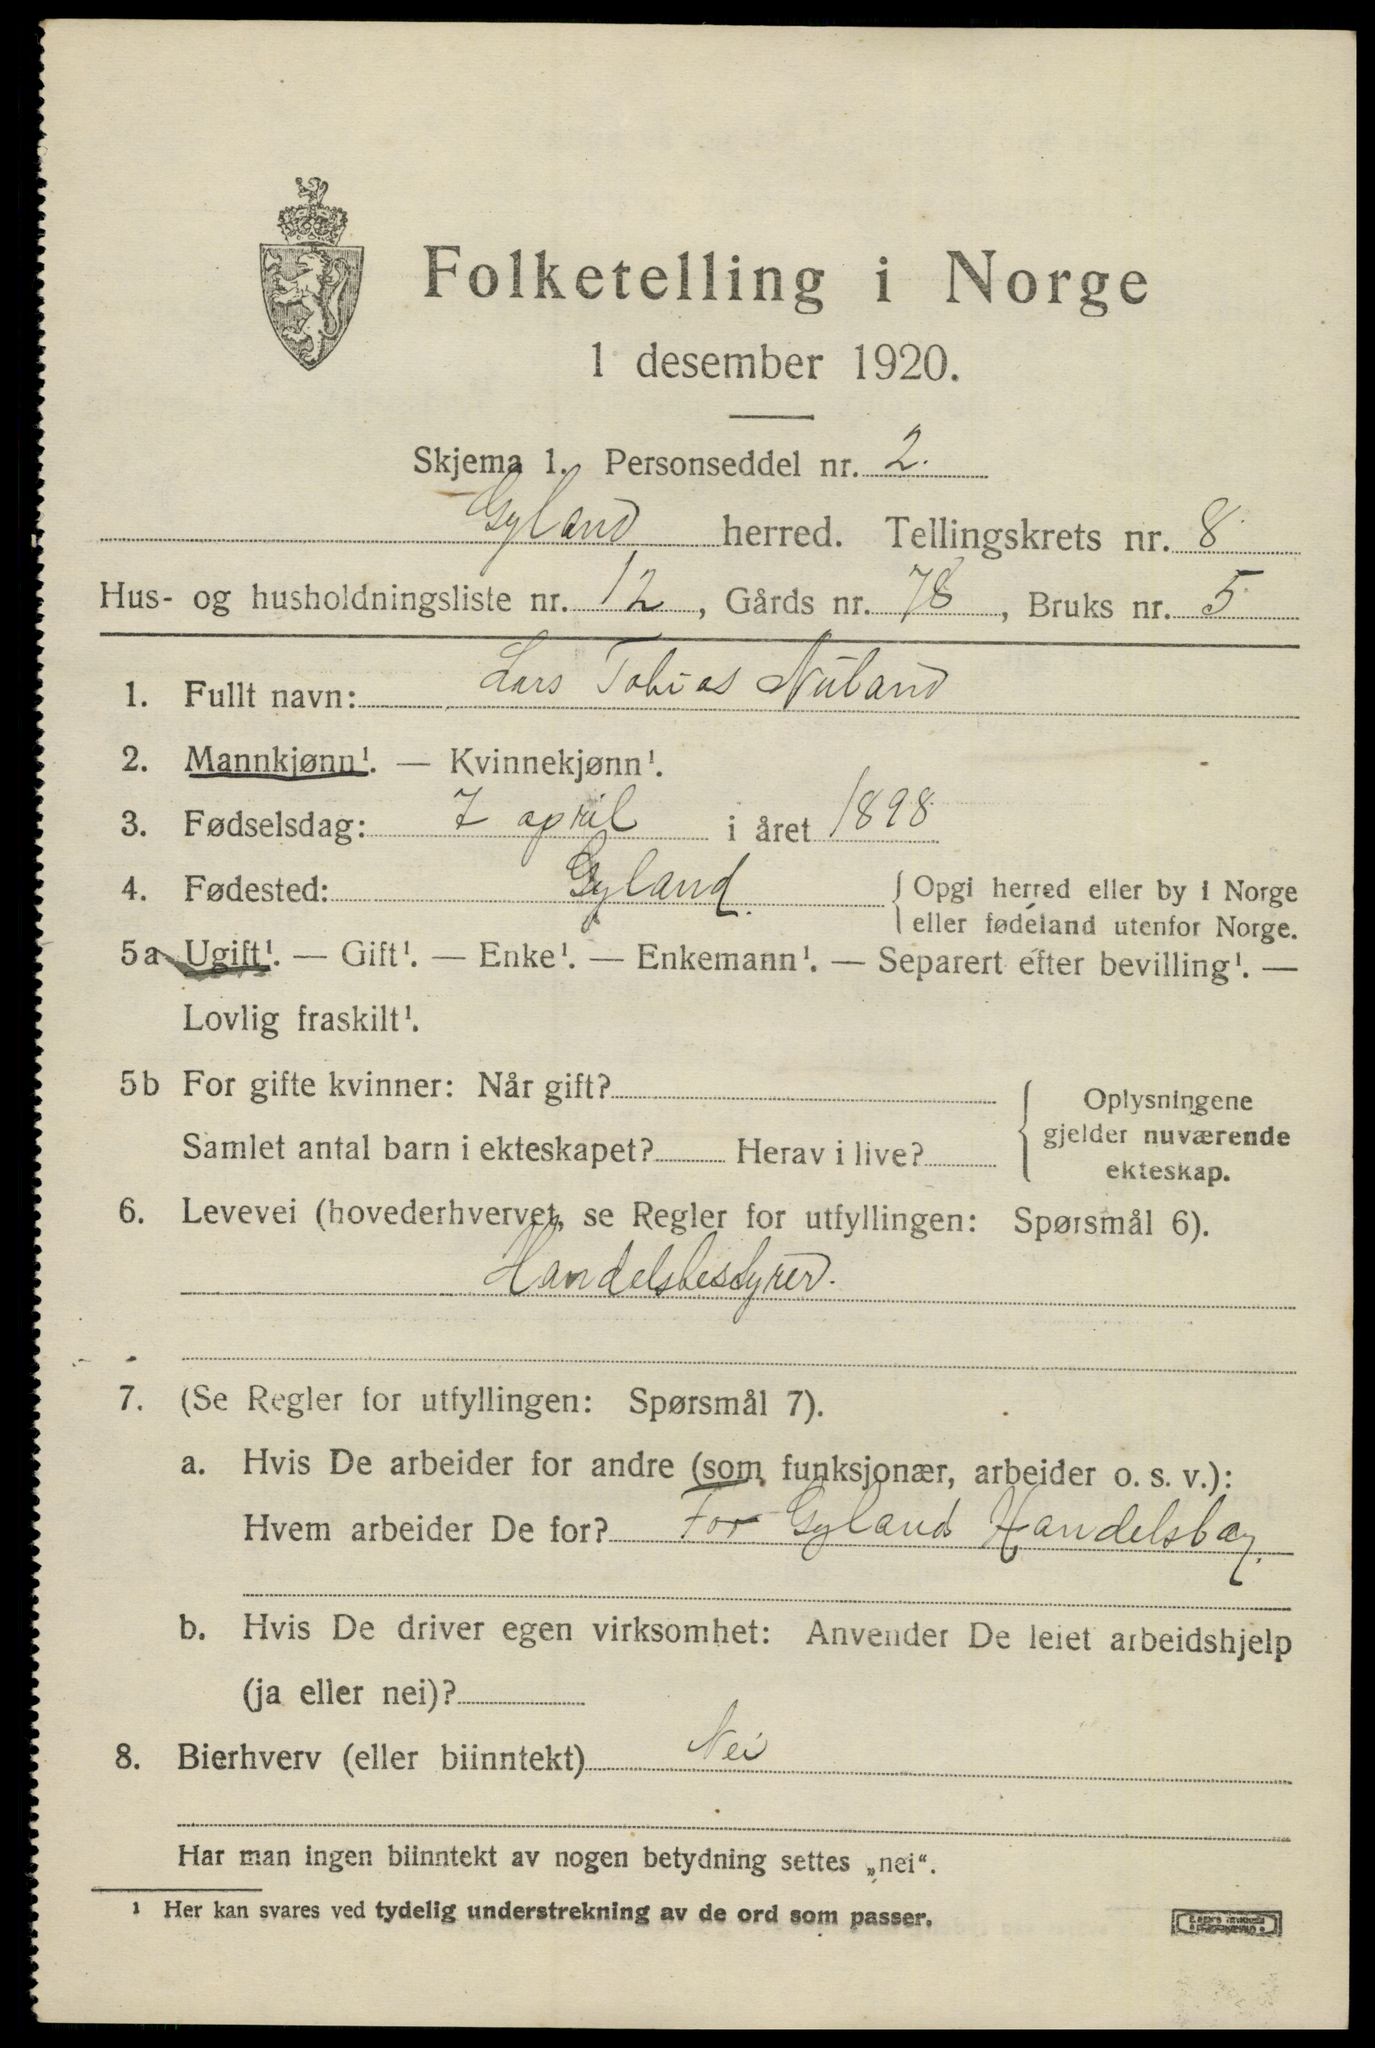 Folketelling i Norge
1 desember 1920.
Skjema 1. Personseddel nr. 2.
Gyland herred. Tellingskrets nr. 8
Hus- og husholdningsliste nr. 12, Gårds nr. 78, Bruks nr. 5
1. Fullt navn: Lars Tobias Nuland
2. Mannkjønn¹. — Kvinnekjønn¹.
3. Fødselsdag: 7 april i året 1898
4. Fødested: Gyland. { Opgi herred eller by i Norge
eller fødeland utenfor Norge.
5a Ugift¹. — Gift¹. — Enke¹. — Enkemann¹. — Separert efter bevilling¹. —
Lovlig fraskilt¹.
5b For gifte kvinner: Når gift?
Samlet antal barn i ekteskapet? Herav i live?
Oplysningene
gjelder nuværende
ekteskap.
6. Levevei (hovederhvervet, se Regler for utfyllingen: Spørsmål 6).
Handelsbestyrer.
7. (Se Regler for utfyllingen: Spørsmål 7).
a. Hvis De arbeider for andre (som funksjonær, arbeider o. s. v.):
Hvem arbeider De for? For Gyland Handelslag.
b. Hvis De driver egen virksomhet: Anvender De leiet arbeidshjelp
(ja eller nei)?
8. Bierhverv (eller biinntekt) Nei
Har man ingen biinntekt av nogen betydning settes „nei“.
¹ Her kan svares ved tydelig understrekning av de ord som passer.